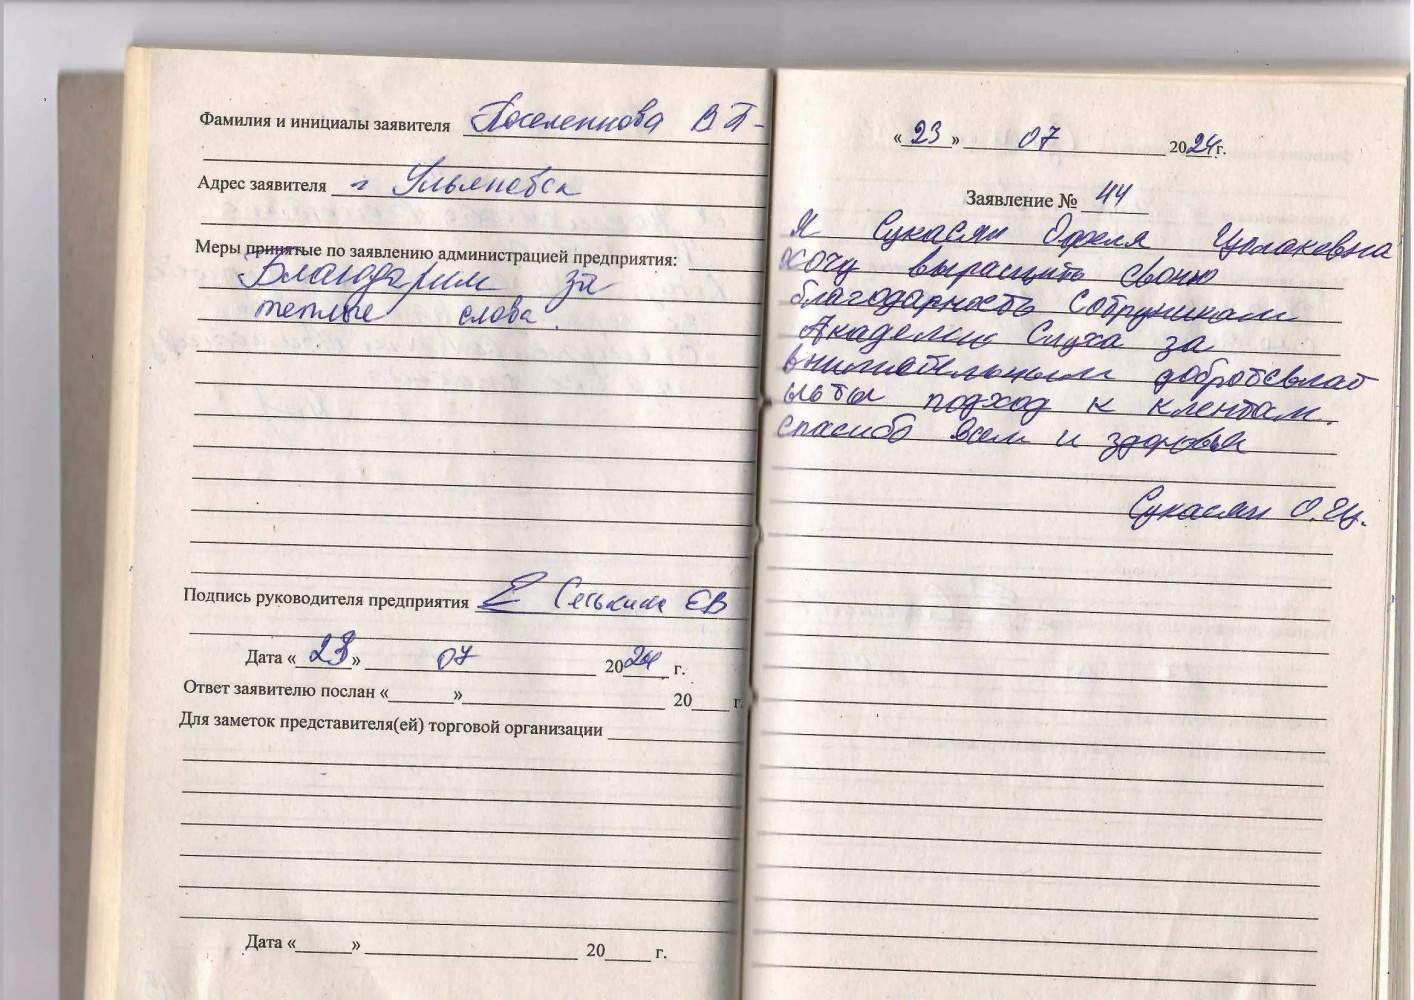 Фамилия и инициалы заявителя Поселеннова В П-
Адрес заявителя г Ульяновск
Меры принятые по заявлению администрацией предприятия:
Благодарим за
теплые слова.
Подпись руководителя предприятия ЕВ
Дата «23» 07 2024 г.
Ответ заявителю послан «       »                20     г.
Для заметок представителя(ей) торговой организации
Дата «       »                20     г.
«23» 07 2024г.
Заявление № 44
Я Сукасян Офеля
хочу выращить свою
благодарность сотруникам
Академию Слуха за
внимательным
подход к клентам.
спасибо всем и здоровья
Сукасян О.